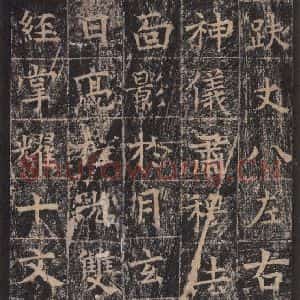 趺丈八左右
神儀肅穆土
面影於月玄
日亮光雙
經掌耀十文
shufawang.cn